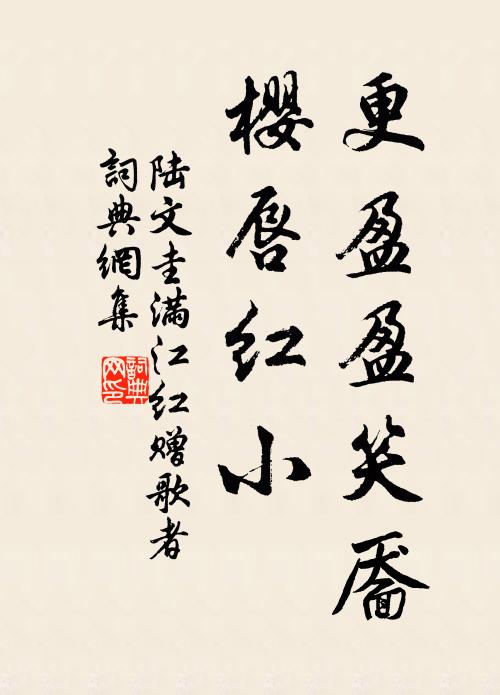 更盈盈笑靥
樱唇红小
陆文圭满江红赠歌者
詞典網集
詞典网印